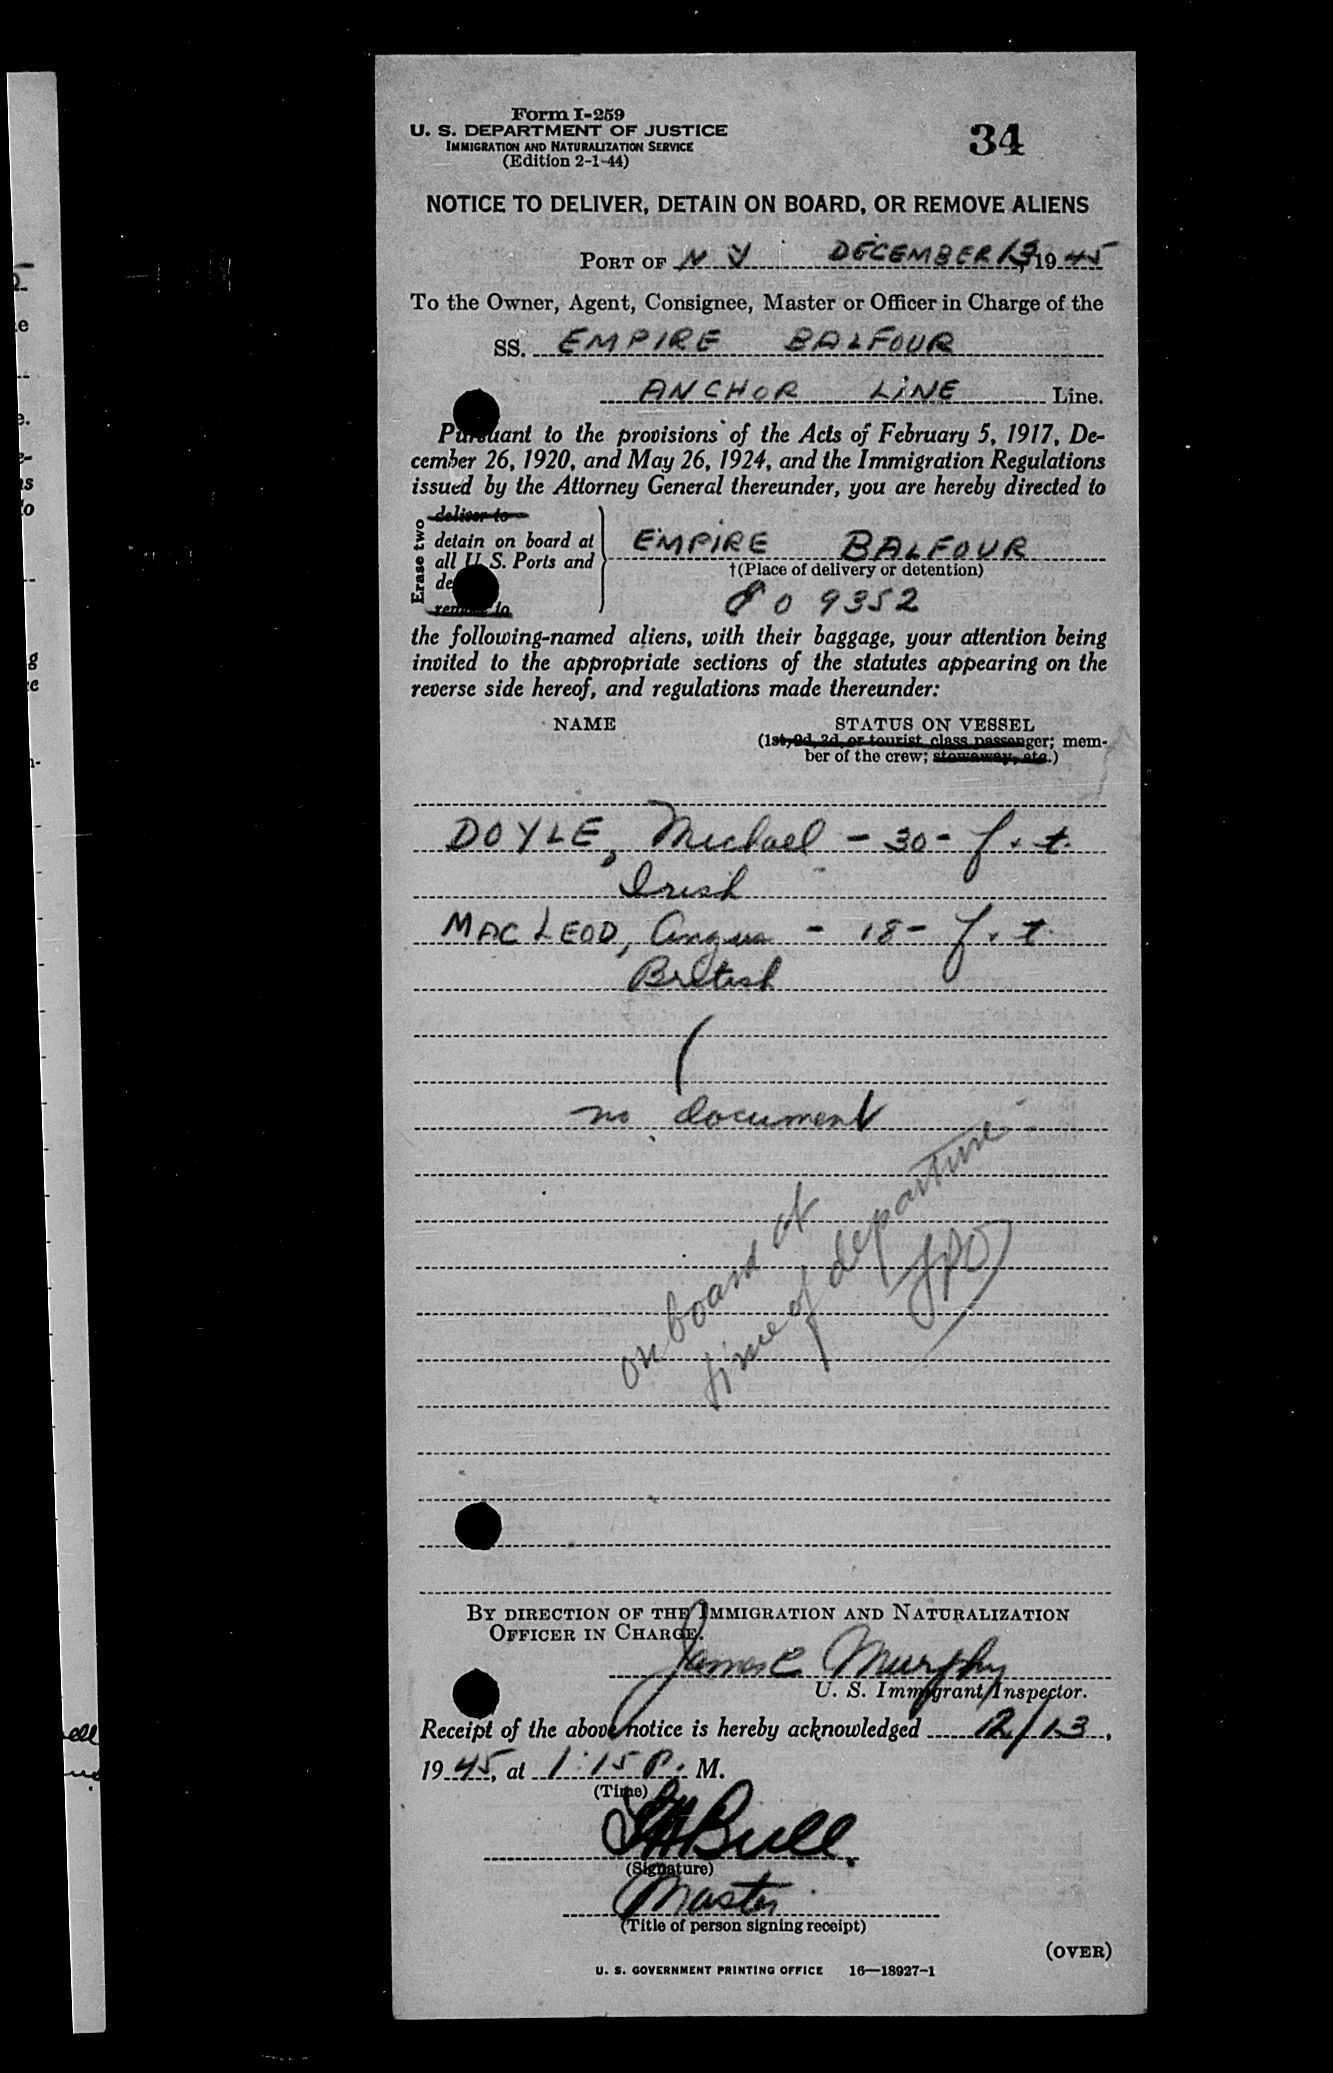 Form I-259
U. S. DEPARTMENT OF JUSTICE
IMMIGRATION AND NATURALIZATION SERVICE
(Edition 2-1-44)
34
NOTICE TO DELIVER, DETAIN ON BOARD, OR REMOVE ALIENS
PORT OF N Y DECEMBER 13, 1945
To the Owner, Agent, Consignee, Master or Officer in Charge of the
SS. EMPIRE BALFOUR
ANCHOR LINE Line.
Pursuant to the provisions of the Acts of February 5, 1917, De-
cember 26, 1920, and May 26, 1924, and the Immigration Regulations
issued by the Attorney General thereunder, you are hereby directed to
Erase two
deliver to
detain on board at
all U. S. Ports and
de
remove to
EMPIRE BALFOUR
†(Place of delivery or detention)
80 9352
the following-named aliens, with their baggage, your attention being
invited to the appropriate sections of the statutes appearing on the
reverse side hereof, and regulations made thereunder:
NAME STATUS ON VESSEL
(1st, 2d, 3d, or tourist class passenger; mem-
ber of the crew; stowaway, etc.)
DOYLE, Michael - 30 - f. t.
Irish
MACLEOD, Angus - 18 - f. t.
British
no document
on board at
time of departure
By direction of the Immigration and Naturalization
Officer in Charge.
James C Murphy
U. S. Immigrant Inspector.
Receipt of the above notice is hereby acknowledged 12/13,
1945, at 1:15 P. M.
(Time)
Bull.
(Signature)
Master
(Title of person signing receipt)
(OVER)
U. S. GOVERNMENT PRINTING OFFICE 16—18927-1